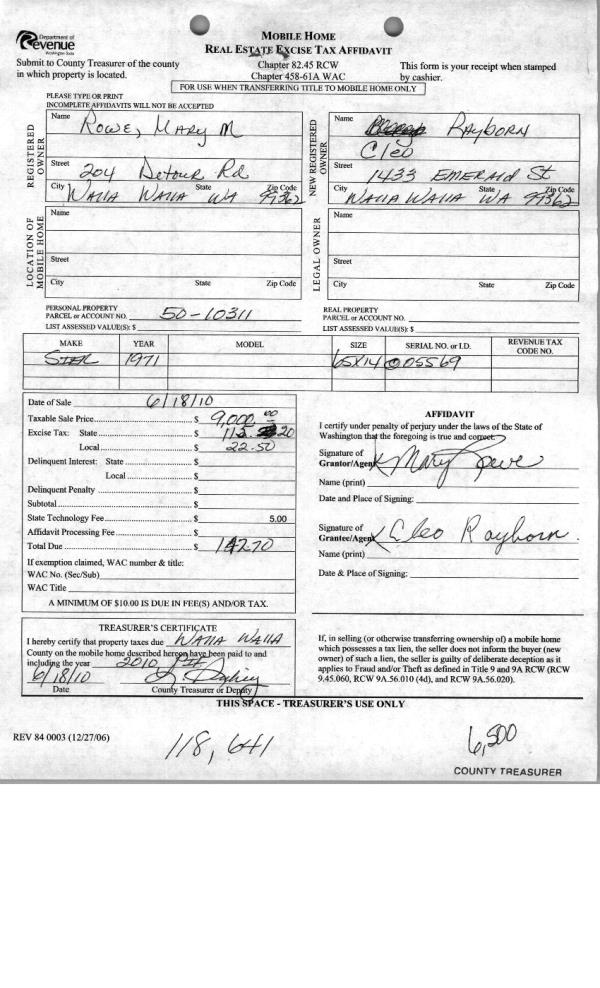 Department of
Revenue
Washington State
MOBILE HOME
REAL ESTATE EXCISE TAX AFFIDAVIT
Submit to County Treasurer of the county
in which property is located.
Chapter 82.45 RCW
Chapter 458-61A WAC
This form is your receipt when stamped
by cashier.
FOR USE WHEN TRANSFERRING TITLE TO MOBILE HOME ONLY
PLEASE TYPE OR PRINT
INCOMPLETE AFFIDAVITS WILL NOT BE ACCEPTED
REGISTERED OWNER
Name Rowe, Mary M
Street 204 Detour Rd
City Walla Walla State WA Zip Code 99362
NEW REGISTERED OWNER
Name Rayborn
Cleo
Street 1433 Emerald St
City Walla Walla State WA Zip Code 99362
LOCATION OF MOBILE HOME
Name
Street
City State Zip Code
LEGAL OWNER
Name
Street
City State Zip Code
PERSONAL PROPERTY
PARCEL or ACCOUNT NO. 50-10311
LIST ASSESSED VALUE(S): $
REAL PROPERTY
PARCEL or ACCOUNT NO.
LIST ASSESSED VALUE(S): $
MAKE YEAR MODEL SIZE SERIAL NO. or I.D. REVENUE TAX CODE NO.
1971 65X14 005569
Date of Sale 6/18/10
Taxable Sale Price $ 9,000 00
Excise Tax: State $ 115.20
Local $ 22.50
Delinquent Interest: State $
Local $
Delinquent Penalty $
Subtotal $
State Technology Fee $ 5.00
Affidavit Processing Fee $
Total Due $ 142.70
If exemption claimed, WAC number & title:
WAC No. (Sec/Sub)
WAC Title
A MINIMUM OF $10.00 IS DUE IN FEE(S) AND/OR TAX.
AFFIDAVIT
I certify under penalty of perjury under the laws of the State of
Washington that the foregoing is true and correct.
Signature of
Grantor/Agent X Mary Rowe
Name (print)
Date and Place of Signing:
Signature of
Grantee/Agent X Cleo Rayborn
Name (print)
Date & Place of Signing:
TREASURER'S CERTIFICATE
I hereby certify that property taxes due Walla Walla
County on the mobile home described hereon have been paid to and
including the year 2010
6/18/10
Date County Treasurer or Deputy
If, in selling (or otherwise transferring ownership of) a mobile home
which possesses a tax lien, the seller does not inform the buyer (new
owner) of such a lien, the seller is guilty of deliberate deception as it
applies to Fraud and/or Theft as defined in Title 9 and 9A RCW (RCW
9.45.060, RCW 9A.56.010 (4d), and RCW 9A.56.020).
THIS SPACE - TREASURER'S USE ONLY
REV 84 0003 (12/27/06)
118,641
6,500
COUNTY TREASURER